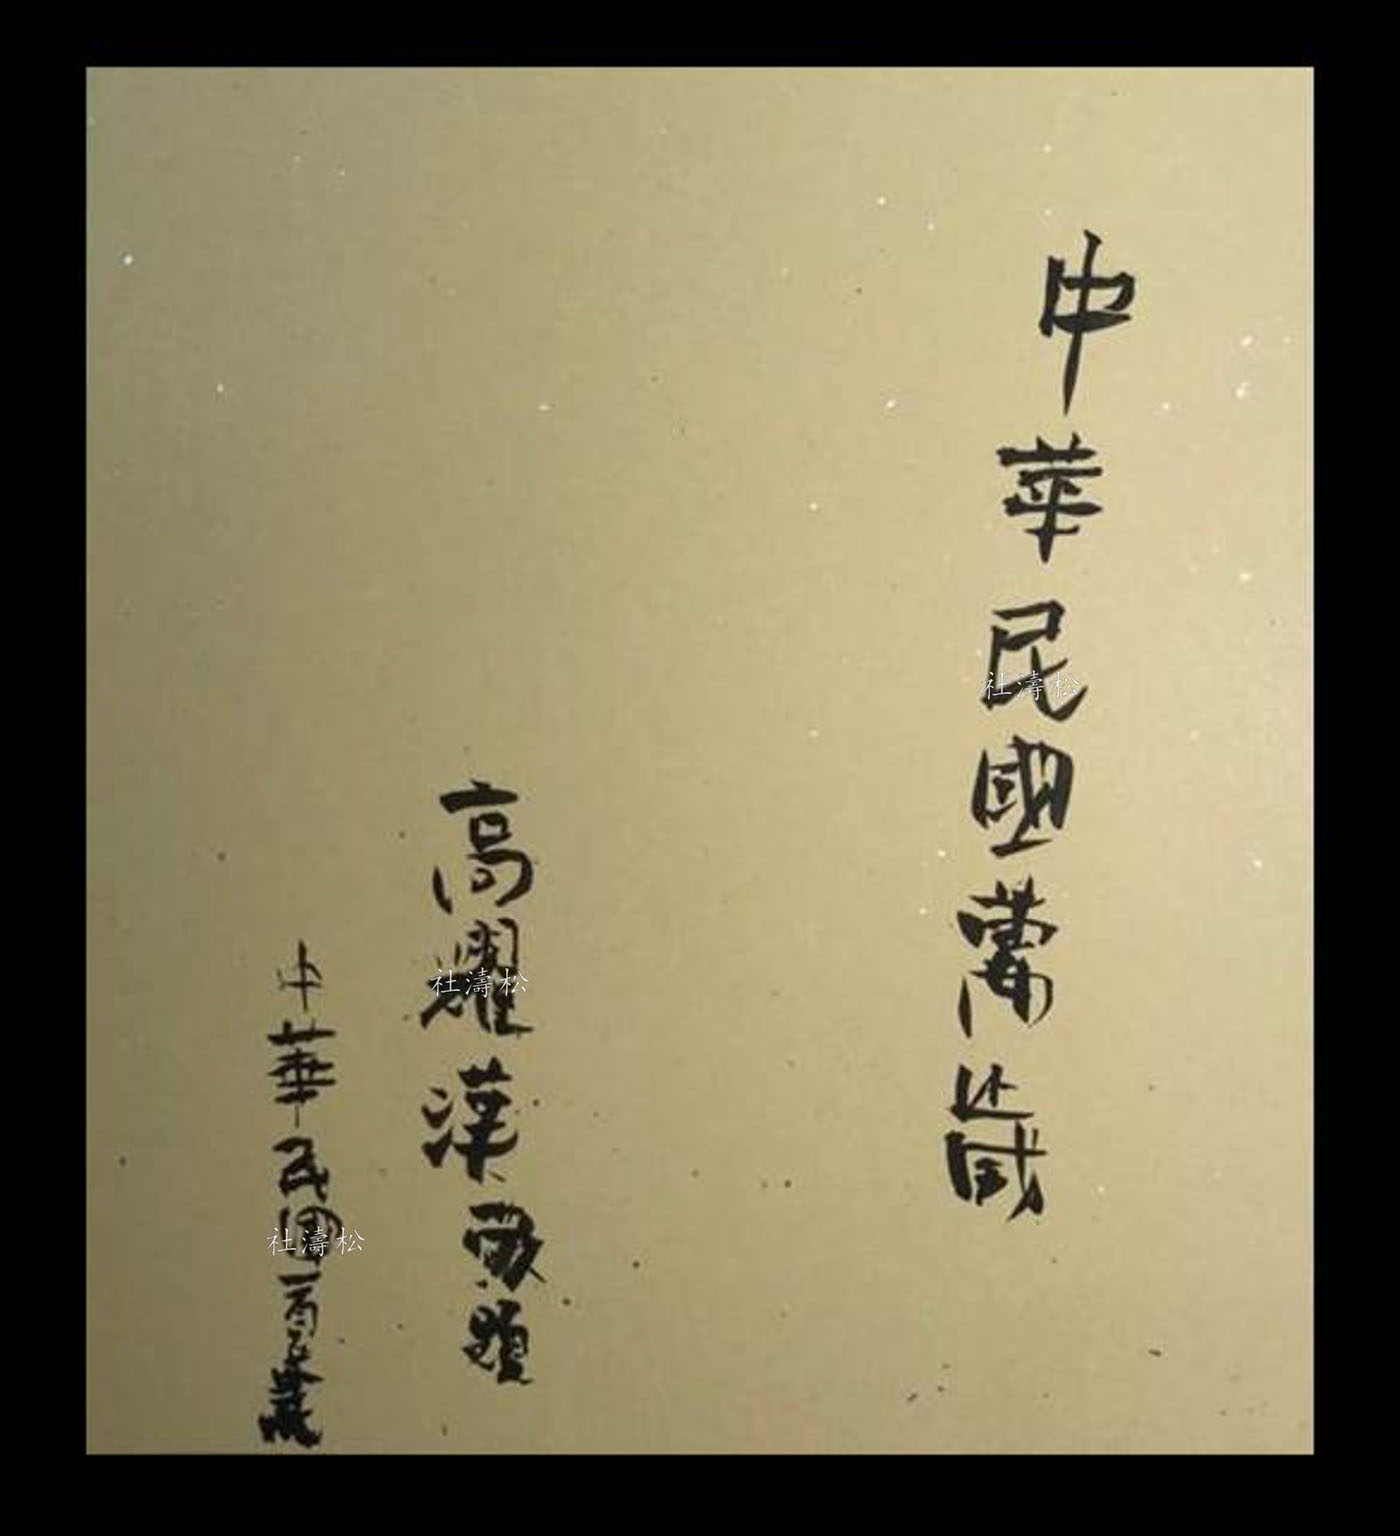 中華民國萬歲
高耀漢敬題
中華民國一百年歲
社濤松
社濤松
社濤松